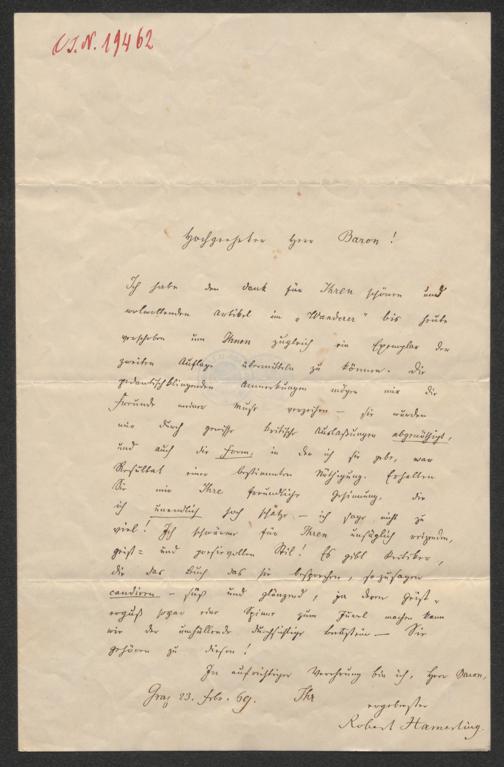 I.N. 19462
Hochgeehrter Herr Baron!
Ich habe den Dank für Ihren schönen und
wolwollenden Artikel im „Wanderer" bis heute
verschoben um Ihnen zugleich ein Exemplar der
zweiten Auflage übermitteln zu können. Die
pedantisch klingenden Anmerkungen mögen mir die
Freunde meiner Muse verzeihen — sie wurden
mir durch gewisse kritische Auslassungen abgenöthigt,
und auch die Form, in der ich sie gebe, war
Resultat einer bestimmten Nöthigung. Erhalten
Sie mir Ihre freundliche Gesinnung, die
ich unendlich hoch schätze — ich sage nicht zu
viel! Ich schwärme für Ihren unsäglich reizenden,
geist= und poesievollen Stil! Es gibt Kritiker,
die das Buch das sie besprechen, sozusagen
candiren — süß und glänzend, ja deren Geist=
erguß sogar eine Spinne zum Juwel machen kann
wie der umhüllende durchsichtige Bernstein — Sie
gehören zu diesen!
In aufrichtiger Verehrung bin ich, Herr Baron,
Graz 23. Febr. 69. Ihr
ergebenster
Robert Hamerling.